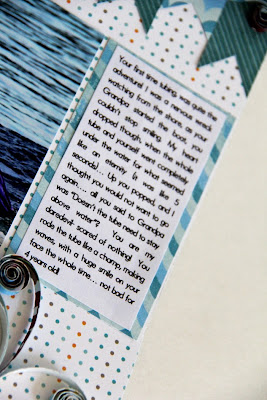 Your first time tubing, was quite the
adventure! I was a nervous wreck
watching from the shore, as your
Grandpa started the boat, you
couldn't stop smiling. My heart
dropped though, when the whole
tube and yourself went completely
under the water for what seemed
like an eternity (it was like 5
seconds)... Up you popped, and I
thought you would not want to go
again... all you said to Grandpa
was "Doesn't the tube need to stay
above water"? You are my
daredevil, scared of nothing! You
rode the tube like a champ, making
waves, with a huge smile on your
face the whole time... not bad for
4 years old!